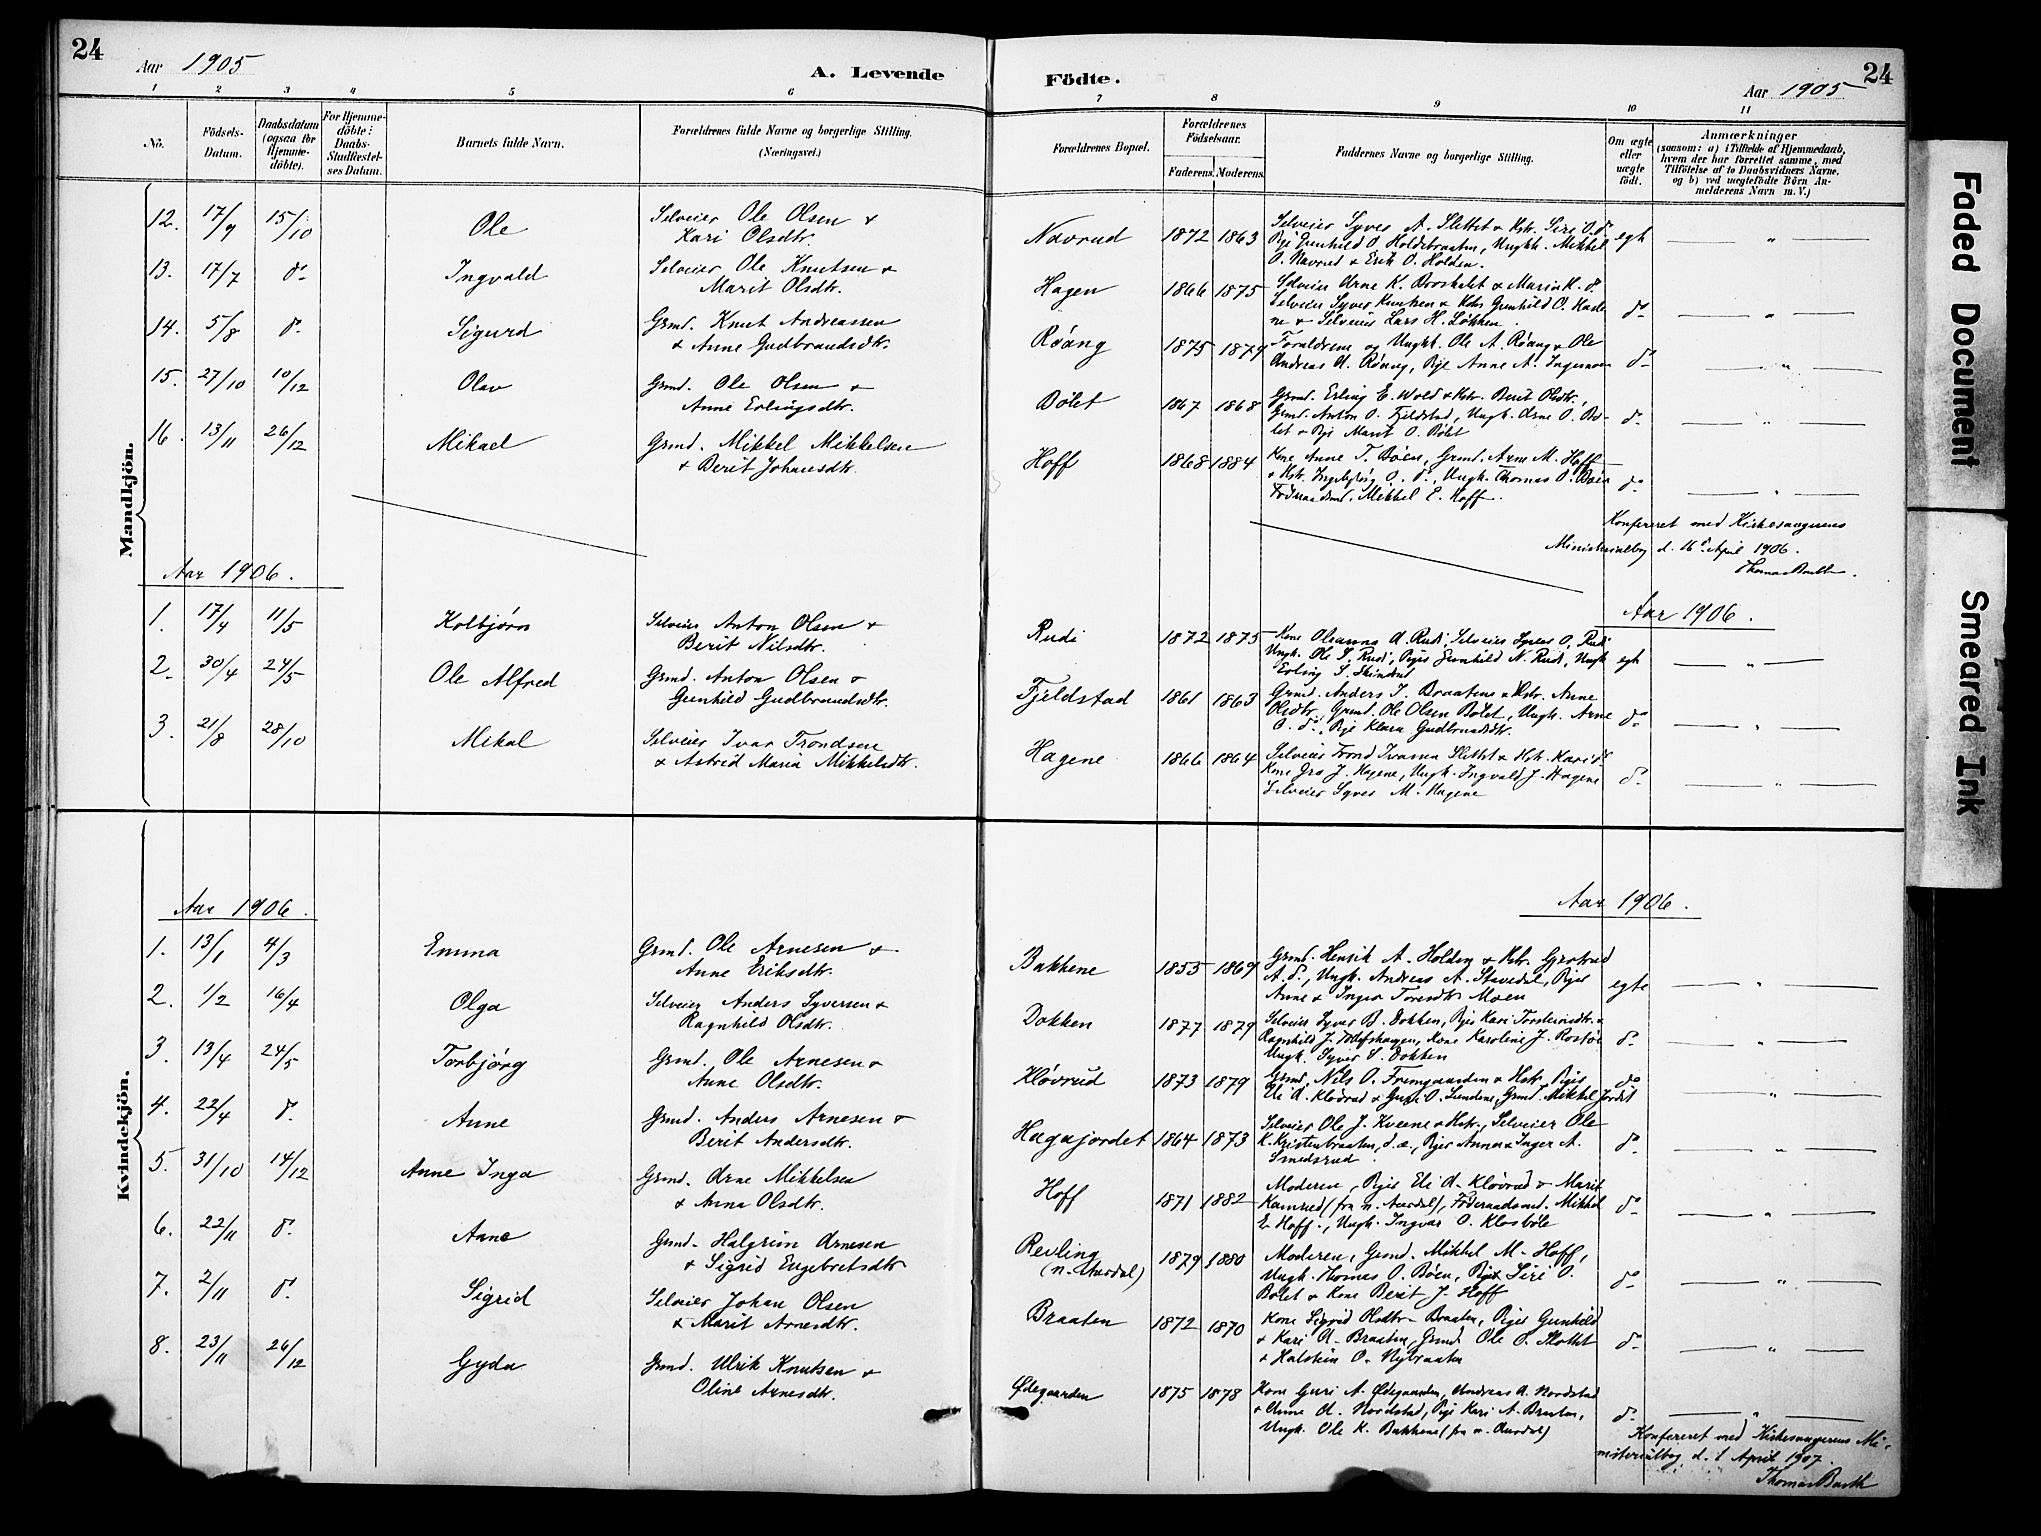 24
Aar 1905
A. Levende
Födte.
Aar 1905
24
1 2 3 4 5 6 7 8 9 10 11
No.
Födsels-Datum.
Daabsdatum (ogsaa for Hjemme-döbte).
For Hjemme-döbte: Daabs-Stadfæstel-ses Datum.
Barnets fulde Navn.
Forældrenes fulde Navne og borgerlige Stilling. (Næringsvei.)
Forældrenes Bopæl.
Forældrenes Födselsaar.
Faderens. Moderens.
Faddernes Navne og borgerlige Stilling.
Om ægte eller uægte födt.
Anmærkninger
(saasom: a) i Tilfælde af Hjemmedaab,
hvem der har forrettet samme, med
Tilföielse af to Daabsvidners Navne,
og b) ved uægtefödte Börn An-
melderens Navn m. V.)
Mandkjön.
12. 17/9 15/10 Ole
Selveier Ole Olsen &
Kari Olsdtr.
Navrud 1872 1863
Selveier Syver A. Slettet & Hstr. Siri O. do
Pige Gunhild O. Holdebraaten, Ungk. Mikkel
O. Navrud & Erik O. Holden.
egt "
13. 17/7 do Ingvald
Selveier Ole Knutsen &
Marit Olsdtr.
Hagen 1866 1875
Selveier Arne K. Broskelet & Maria K. do
Selveier Syver Knutsen & Hstr Gunhild O. Hade-
ne & Selveier Lars H. Løkken.
do "
14. 5/8 do Sigurd
Grmd. Knut Andreassen
& Anne Gudbrandsdtr.
Røang 1875 1879
Forældrene og Ungk. Ole A. Røang & Ole
Andreas A. Røang, Pige Anne A. Ingemoen
do "
15. 27/10 10/12 Olav
Grmd. Ole Olsen &
Anne Erlingsdtr.
Bølet 1867 1868
Grmd. Erling E. Wold & Hstr. Berit Olsdtr.,
Grmd. Anton O. Fjeldstad, Ungk. Arne O. Bø-
let & Pige Marit O. Bølet
do "
16. 13/11 26/12 Mikael
Grmd. Mikkel Mikkelsen
& Berit Johansdtr.
Hoff 1868 1884
Kone Anne T. Bøen, Grmd. Arne M. Hoff
& Hstr. Ingebjørg O. do, Ungk. Thomas O. Bøen
Føderaadsmd. Mikkel E. Hoff.
do "
Konfereret med Kirkesangerens
Ministerialbog d. 16 April 1906.
Thomas Barth.
Aar 1906.
Aar 1906.
1. 17/4 11/5 Kolbjørn
Selveier Anton Olsen &
Berit Nilsdtr.
Rudi 1872 1875
Kone Oleanna A. Rudi, Selveier Syver O. Rudi
Ungk. Ole S. Rudi, Piges Gunhild N. Rudi, Ungk
Erling S.
egt "
2. 30/4 24/5 Ole Alfred
Grmd. Anton Olsen &
Gunhild Gudbrandsdtr.
Fjeldstad 1861 1863
Grmd. Anders I. Braatene & Hstr. Anne
Olsdtr, Grmd. Ole Olsen Bølet, Ungk. Arne
O. do, Pige Klara Gudbrandsdtr.
do "
3. 21/8 28/10 Mikal
Selveier Ivar Trondsen
& Astrid Maria Mikkelsdtr.
Hagene 1866 1864
Selveier Trond Ivarsen Slettet & Hstr. Kari do
Kone Gro J. Hagene, Ungk. Ingvald J. Hagene
Selveier Syver M. Hagene
do "
Kvindekjön.
Aar 1906.
Aar 1906.
1. 13/1 4/3 Emma
Grmd. Ole Arnesen &
Anne Eriksdtr.
Bakkene 1855 1869
Grmd. Henrik A. Holden & Hstr. Gertrud
A. do, Ungk. Andreas A. Stavedal, Piges
Anne & Inger Toresdtr Moen
egte "
2. 1/2 16/4 Olga
Selveier Anders Syversen &
Ragnhild Olsdtr.
Dokken 1877 1879
Selveier Syver B. Dokken, Piges Kari Torsteinsdtr. &
Ragnhild J. Tollefshaugen, Kone Karoline J. Rostøe
Ungk. Syver S. Dokken
do "
3. 13/4 24/5 Torbjørg
Grmd. Ole Arnesen &
Anne Olsdtr.
Kløvrud 1873 1879
Grmd. Nils O. Fremgaarden & Hstr, Piges
Eli A. Kløvrud & Guri O. Sundene, Grmd. Mikkel Jordet
do "
4. 22/4 do Anne
Grmd. Anders Arnesen &
Berit Andersdtr.
Hagajordet 1864 1873
Selveier Ole J. Kveene & Hstr., Selveier Ole
K. Kristenbraaten, d. æ., Piges Anna & Inger A.
Smedsrud.
do "
5. 31/10 14/12 Anne Inga
Grmd. Arne Mikkelsen
& Anna Olsdtr.
Hoff 1871 1882
Moderen, Piges Eli A. Kløvrud & Marit
Kamrud (fra n. Aurdal), Føderaadsmd. Mikkel
E. Hoff., Ungk. Ingvar O. Klosbøle
do "
6. 22/11 do Anne
Grmd. Halgrim Arnesen
& Sigrid Engebretsdtr
Revling
(n. Aurdal)
1879 1880
Moderen, Grmd. Mikkel M. Hoff,
Ungk. Thomas O. Bøen, Pige Siri O.
Bølet & Kone Berit J. Hoff
do "
7. 2/11 do Sigrid
Selveier Johan Olsen
& Marit Arnesdtr.
Braaten 1872 1870
Kone Sigrid Olsdtr. Braaten, Piges Gunhild
& Kari A. Braaten, Grmd. Ole O. Slettet
& Halstein O. Nybraaten
do "
8. 23/11 26/12 Gyda
Grmd. Ulrik Knutsen &
Oline Arnesdtr.
Ødegaarden 1875 1878
Kone Guri A. Ødegaarden, Andreas A. Nordstad
& Anne A. Nordstad, Pige Kari A. Braaten,
Ungk. Ole K. Bakkene (fra n. Aurdal)
do "
Konfereret med Kirkesangerens Mi-
nisterialbog d. 1 April 1907.
Thomas Barth
Faded Document
Smeared Ink